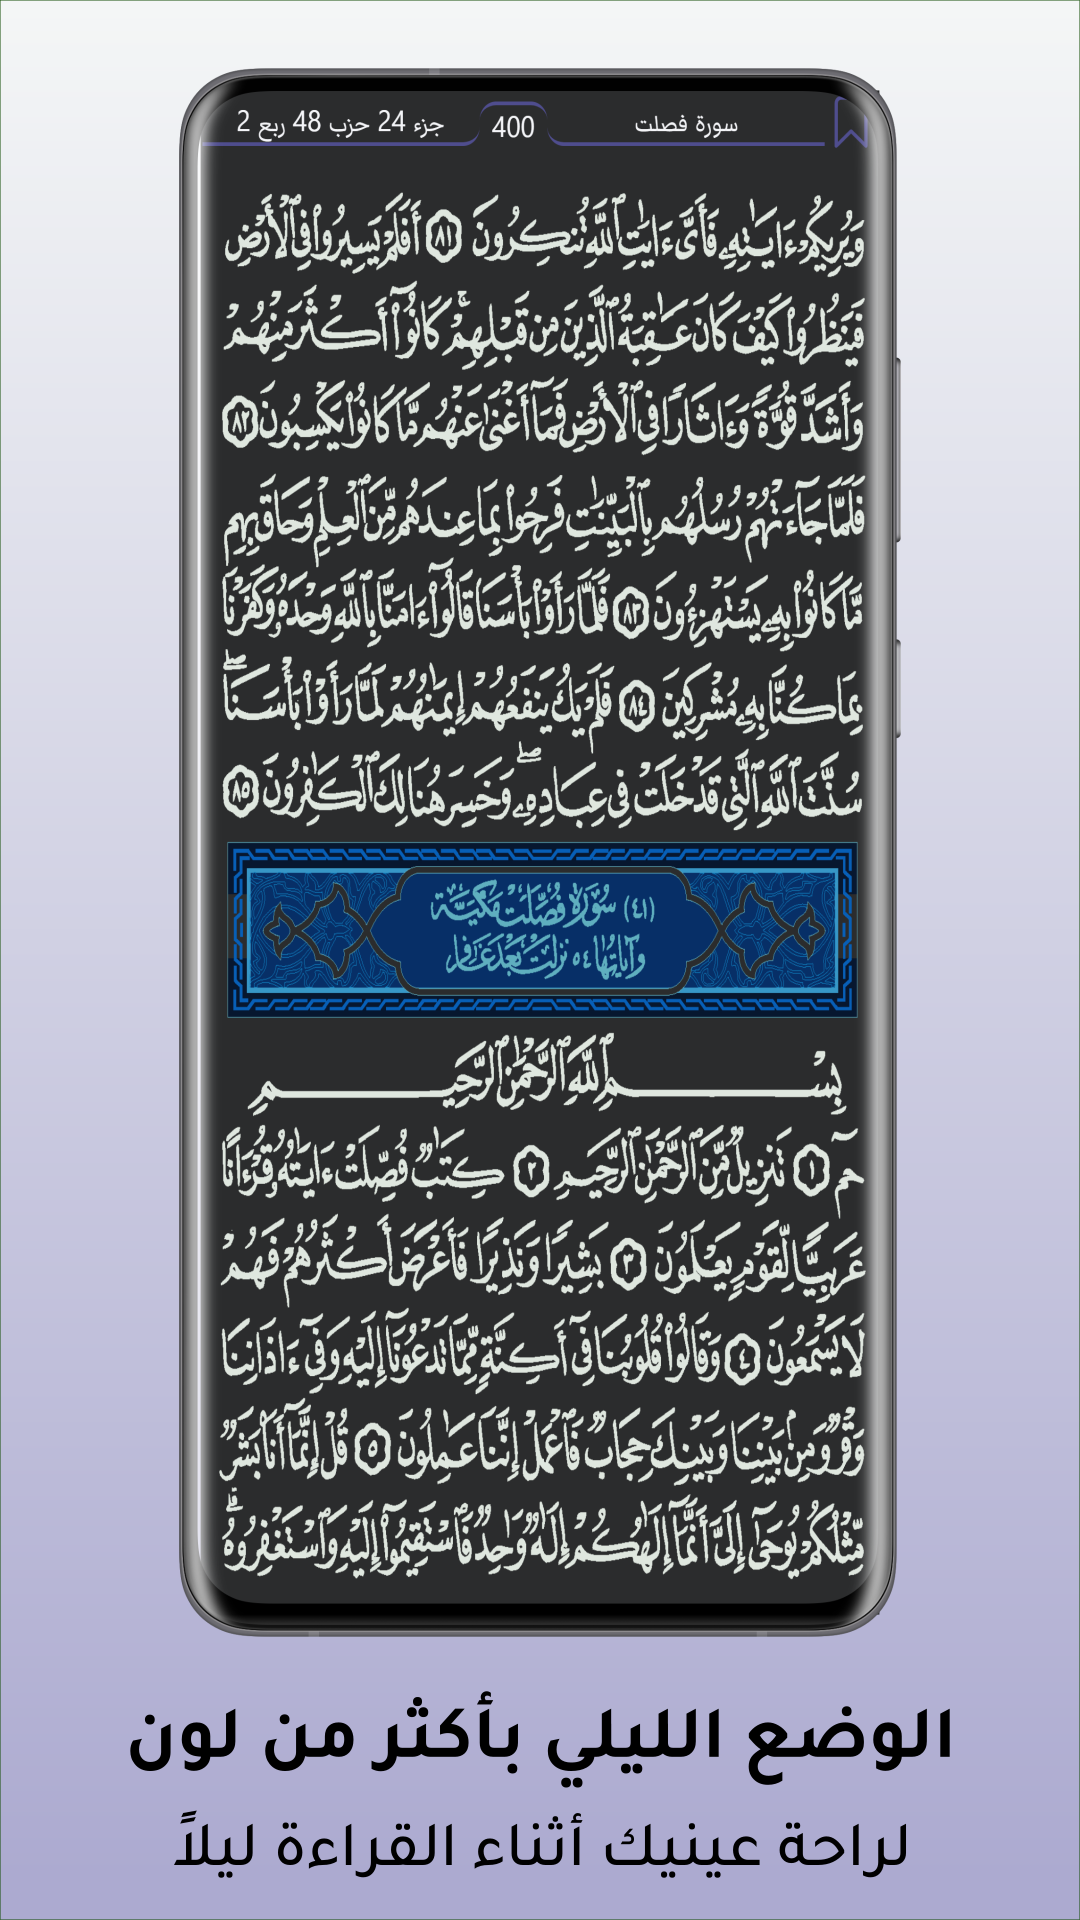 سورة فصلت 400 جزء 24 حزب 48 ربع 2
وَيُرِيكُمْ ءَايَٰتِهِۦ فَأَىَّ ءَايَٰتِ ٱللَّهِ تُنكِرُونَ ٨١ أَفَلَمْ يَسِيرُوا۟ فِى ٱلْأَرْضِ
فَيَنظُرُوا۟ كَيْفَ كَانَ عَٰقِبَةُ ٱلَّذِينَ مِن قَبْلِهِمْ ۚ كَانُوٓا۟ أَكْثَرَ مِنْهُمْ
وَأَشَدَّ قُوَّةً وَءَاثَارًا فِى ٱلْأَرْضِ فَمَآ أَغْنَىٰ عَنْهُم مَّا كَانُوا۟ يَكْسِبُونَ ٨٢
فَلَمَّا جَآءَتْهُمْ رُسُلُهُم بِٱلْبَيِّنَٰتِ فَرِحُوا۟ بِمَا عِندَهُم مِّنَ ٱلْعِلْمِ وَحَاقَ بِهِم
مَّا كَانُوا۟ بِهِۦ يَسْتَهْزِءُونَ ٨٣ فَلَمَّا رَأَوْا۟ بَأْسَنَا قَالُوٓا۟ ءَامَنَّا بِٱللَّهِ وَحْدَهُۥ وَكَفَرْنَا
بِمَا كُنَّا بِهِۦ مُشْرِكِينَ ٨٤ فَلَمْ يَكُ يَنفَعُهُمْ إِيمَٰنُهُمْ لَمَّا رَأَوْا۟ بَأْسَنَا ۖ
سُنَّتَ ٱللَّهِ ٱلَّتِى قَدْ خَلَتْ فِى عِبَادِهِۦ ۖ وَخَسِرَ هُنَالِكَ ٱلْكَٰفِرُونَ ٨٥
(٤١) سُورَة فُصِّلَت مَكِّيَّة
وَآيَاتُهَا ٥٤ نَزَلَت بَعْدَ غَافِر
بِسْمِ ٱللَّهِ ٱلرَّحْمَٰنِ ٱلرَّحِيمِ
حمٓ ١ تَنزِيلٌ مِّنَ ٱلرَّحْمَٰنِ ٱلرَّحِيمِ ٢ كِتَٰبٌ فُصِّلَتْ ءَايَٰتُهُۥ قُرْءَانًا
عَرَبِيًّا لِّقَوْمٍ يَعْلَمُونَ ٣ بَشِيرًا وَنَذِيرًا فَأَعْرَضَ أَكْثَرُهُمْ فَهُمْ
لَا يَسْمَعُونَ ٤ وَقَالُوا۟ قُلُوبُنَا فِىٓ أَكِنَّةٍ مِّمَّا تَدْعُونَآ إِلَيْهِ وَفِىٓ ءَاذَانِنَا
وَقْرٌ وَمِنۢ بَيْنِنَا وَبَيْنِكَ حِجَابٌ فَٱعْمَلْ إِنَّنَا عَٰمِلُونَ ٥ قُلْ إِنَّمَآ أَنَا۠ بَشَرٌ
مِّثْلُكُمْ يُوحَىٰٓ إِلَىَّ أَنَّمَآ إِلَٰهُكُمْ إِلَٰهٌ وَٰحِدٌ فَٱسْتَقِيمُوٓا۟ إِلَيْهِ وَٱسْتَغْفِرُوهُ ۗ
الوضع الليلي بأكثر من لون
لراحة عينيك أثناء القراءة ليلاً